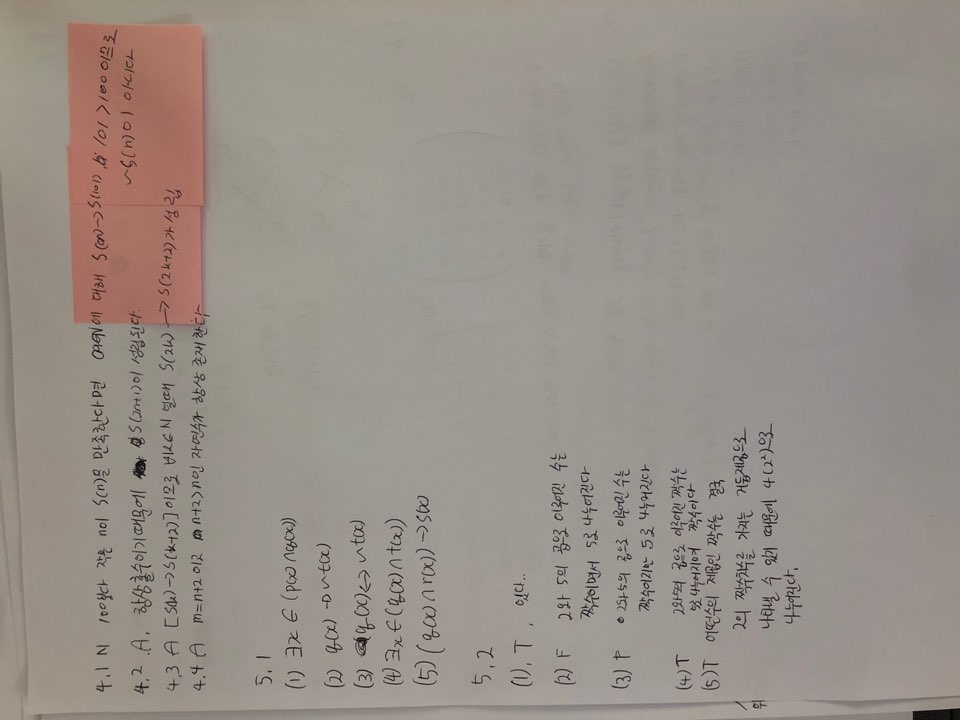 4.1 N 100보다 작은 n이 S(n)을 만족한다면 에 대해 → S(101) 101 > 100 이므로
~S(n)이 아니다
4.2 A. 항상홀수이기때문에 S(2n+1)이 성립된다.
4.3 A [S(k)→S(k+2)]이므로 ∀k∈N 일때 S(2k) → S(2k+2)가 성립
4.4 A m=n+2 이고 n+2>n인 자연수가 항상 존재한다.
5.1
(1) ∃x ∈ (p(x)∩q(x))
(2) q(x) → ~t(x)
(3) q(x) ↔ ~t(x)
(4) ∃x∈(q(x)∩t(x))
(5) (q(x)∩r(x)) → s(x)
5.2
(1), T, 있다..
(2) F 2와 5의 곱으로 이루어진 수는
짝수이면서 5로 나누어진다
(3) F 2와5의 곱으로 이루어진 수는
짝수이지만 5로 나누어진다
(4) T 2와5의 곱으로 이루어진 짝수는
5로 나누어지며 짝수이다
(5) T 어떤수의 제곱인 짝수는 결국
2의 짝수차수를 가지는 거듭제곱으로
나타낼 수 있기 때문에 4(2²)으로
나누어진다.